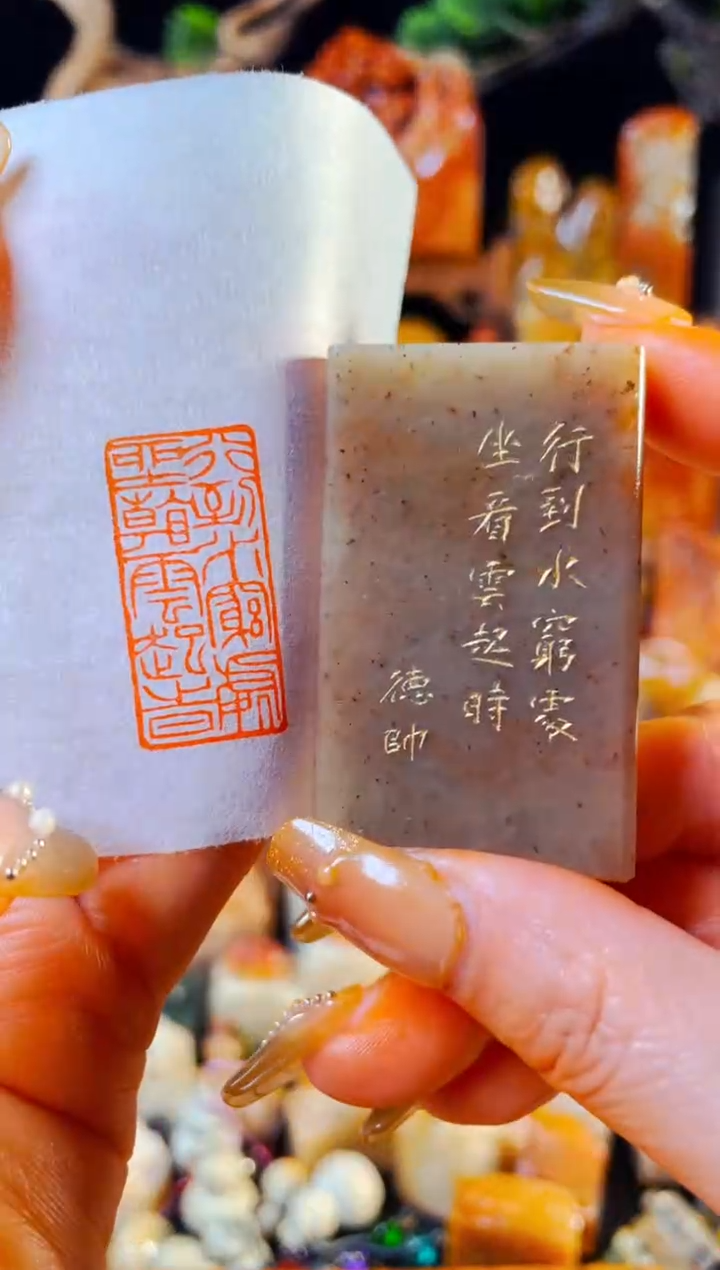 行到水窮處
坐看雲起時
德帥
行到水窮處
坐看雲起旹